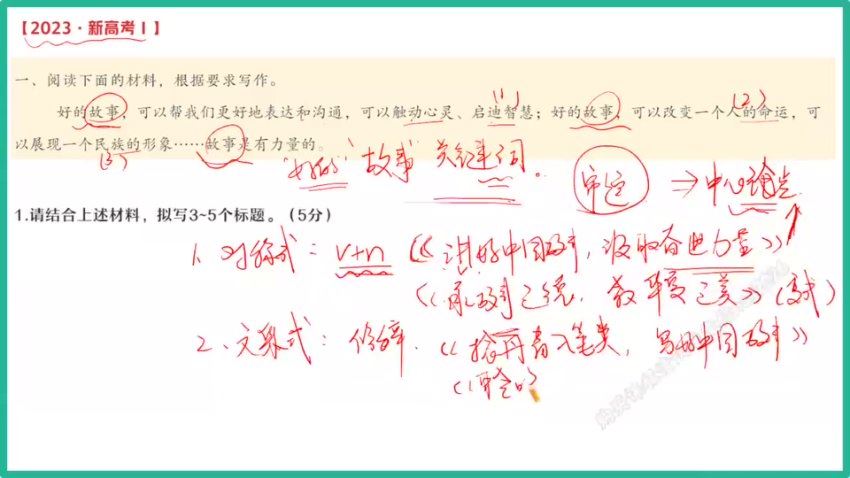 【2023·新高考Ⅰ】
一、阅读下面的材料，根据要求写作。
好的故事，可以帮我们更好地表达和沟通，可以触动心灵、启迪智慧；好的故事，可以改变一个人的命运，可
以展现一个民族的形象……故事是有力量的。
(1)
(2)
(3)
"好的"故事"关键词。
审这 → 中心论点
1.请结合上述材料，拟写3~5个标题。（5分）
1、对称式：v+n《讲好中国故事，汲取奋进力量》
《承故事之魂，敖 之美》（ 式）
2、文采式：修辞.《撷丹青入笔类，写好中国故事》
《聆的